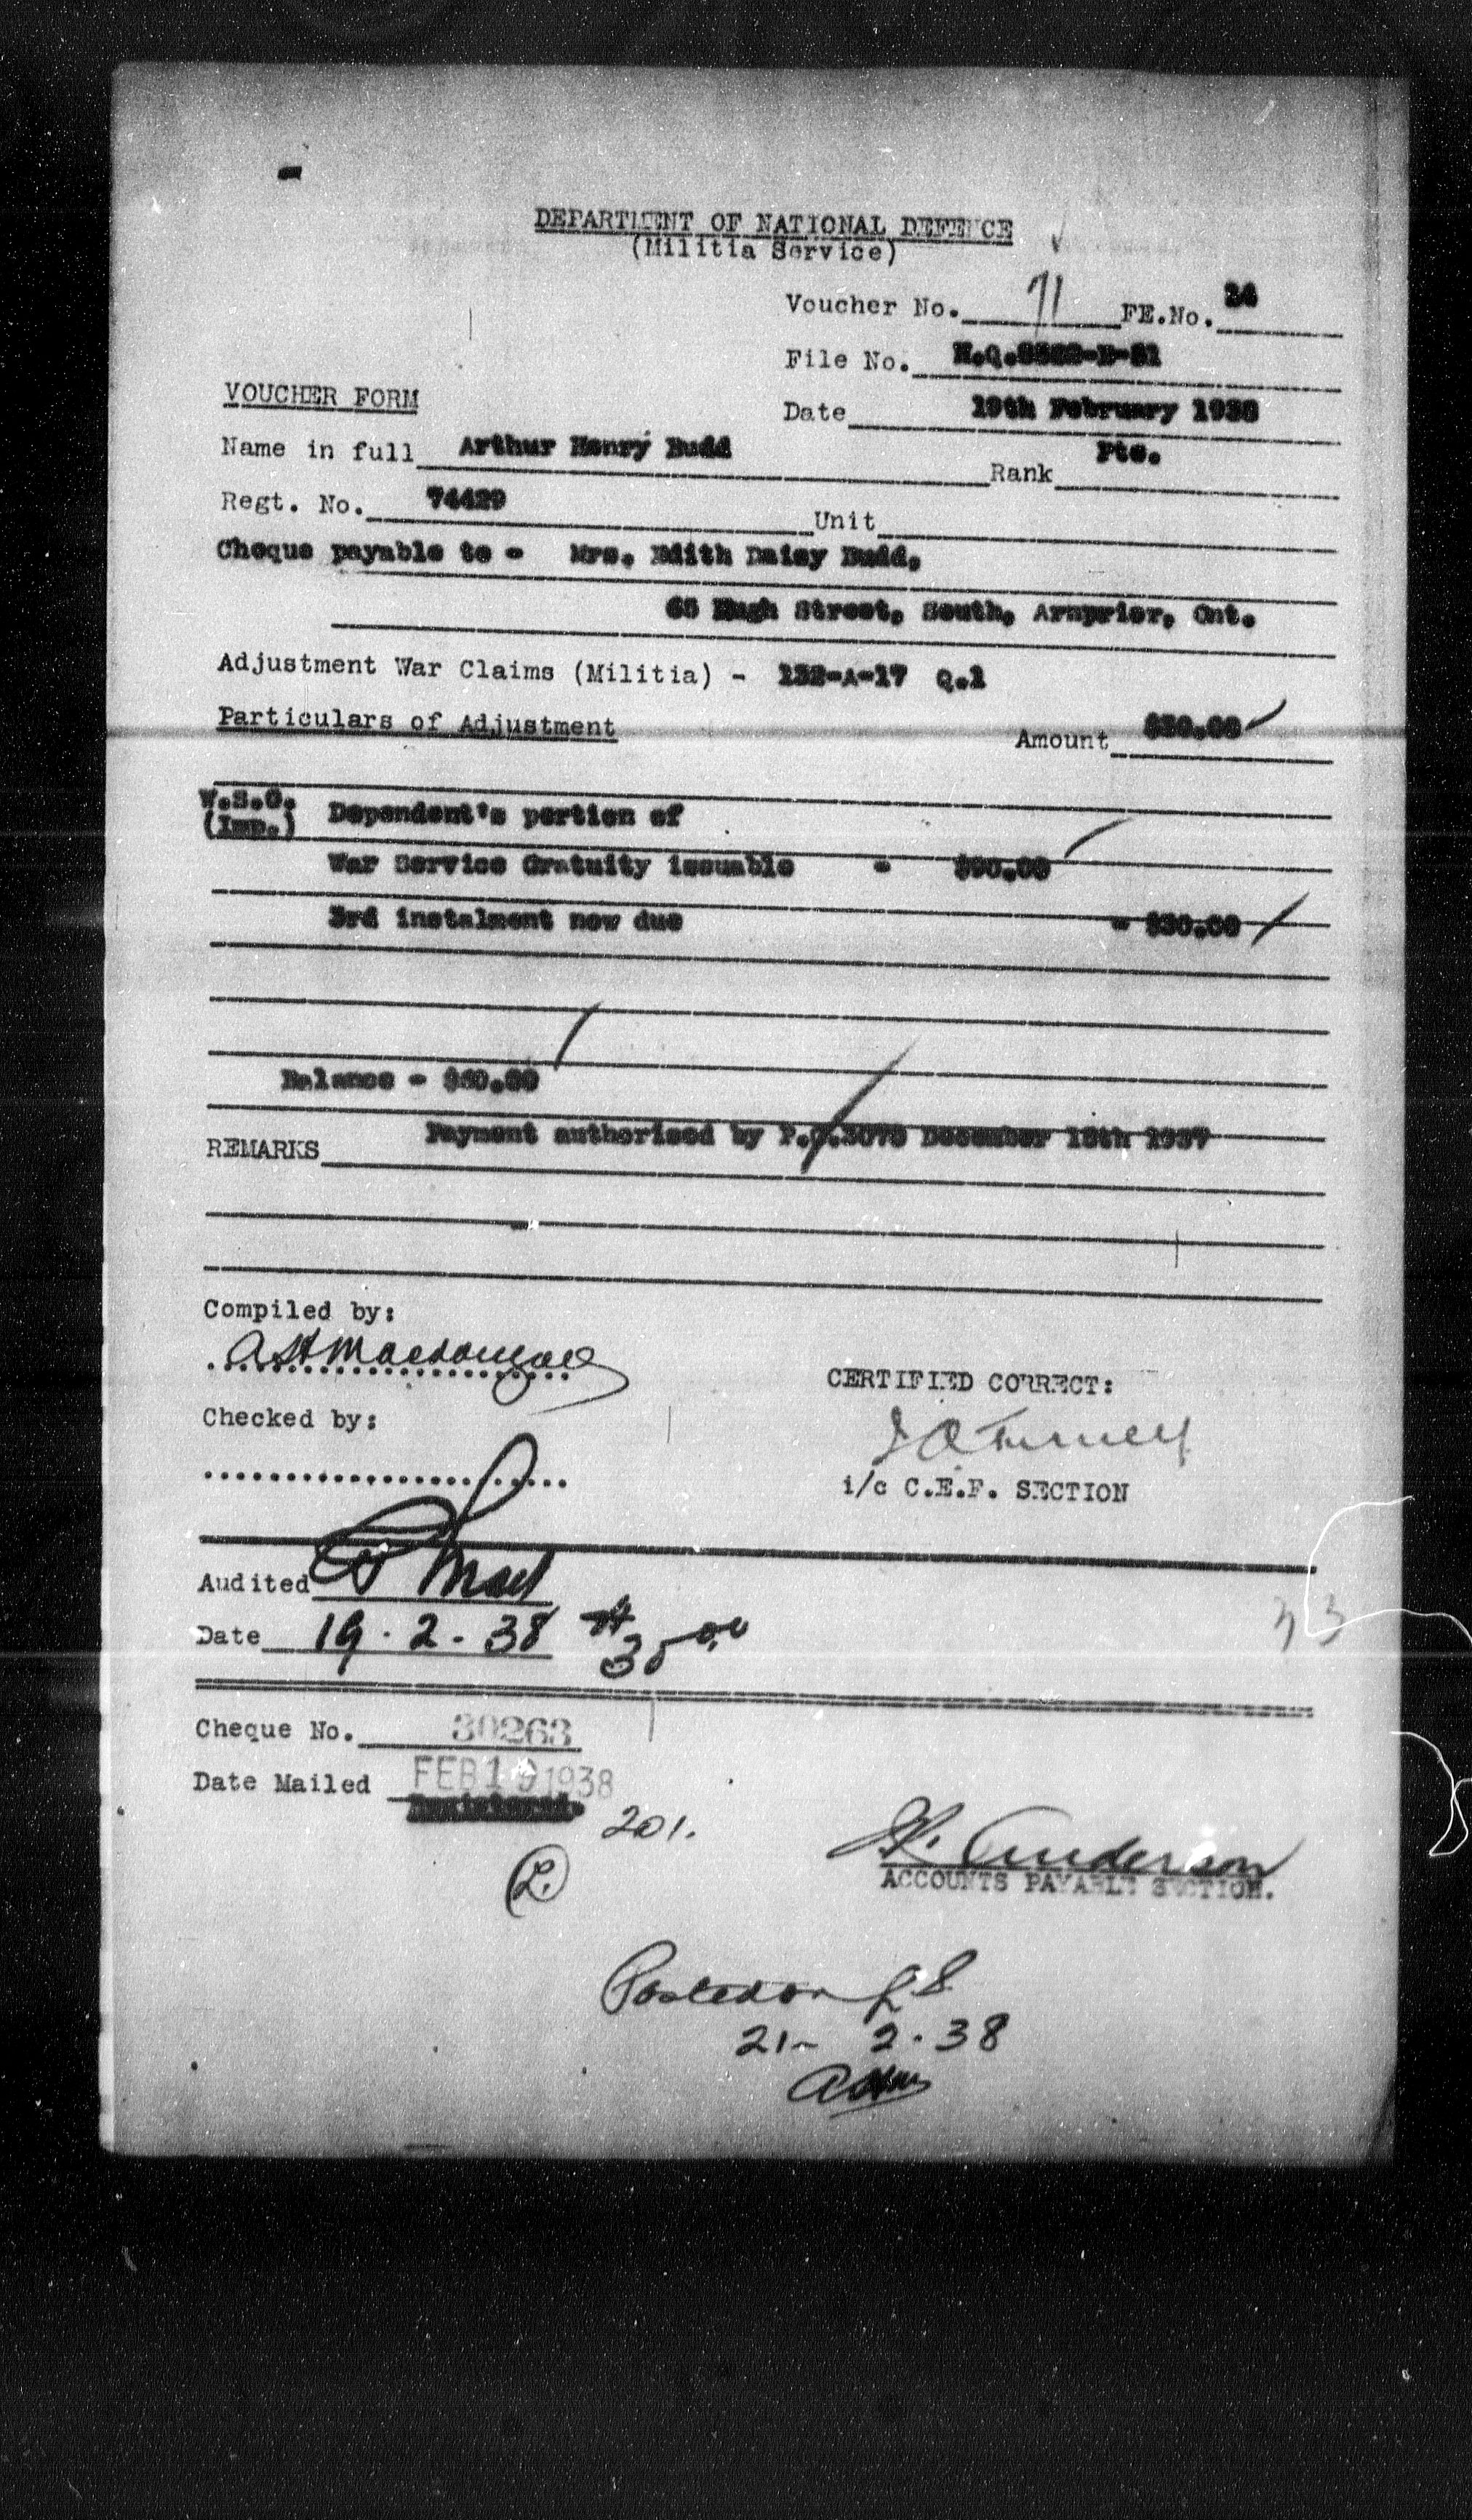 DEPARTMENT OF NATIONAL DEFENCE
(Militia Service)
Voucher No. 71 FE.No. 24
File No. H.Q.
VOUCHER FORM
Date 19th February 1938
Name in full Arthur Henry Budd
Rank Pte.
Regt. No. 74429 Unit
Cheque payable to - Mrs. Edith Daisy Budd,
65 Hugh Street, South, Arnprior, Ont.
Adjustment War Claims (Militia) - 132-A-17 Q.1
Particulars of Adjustment
Amount $30.00
W.S.G.
(Imp.) Dependent's portion of
War Service Gratuity issuable - $90.00
3rd instalment now due - $30.00
Balance -
REMARKS Payment authorised by P.C.3070 December 1937
Compiled by:
Checked by:
CERTIFIED CORRECT:
i/c C.E.F. SECTION
Audited
Date 19.2.38
33
Cheque No. 30263
Date Mailed FEB 19 1938
Registered.
201.
L.
Anderson
ACCOUNTS PAYABLE SECTION.
Posted on
21- 2.38